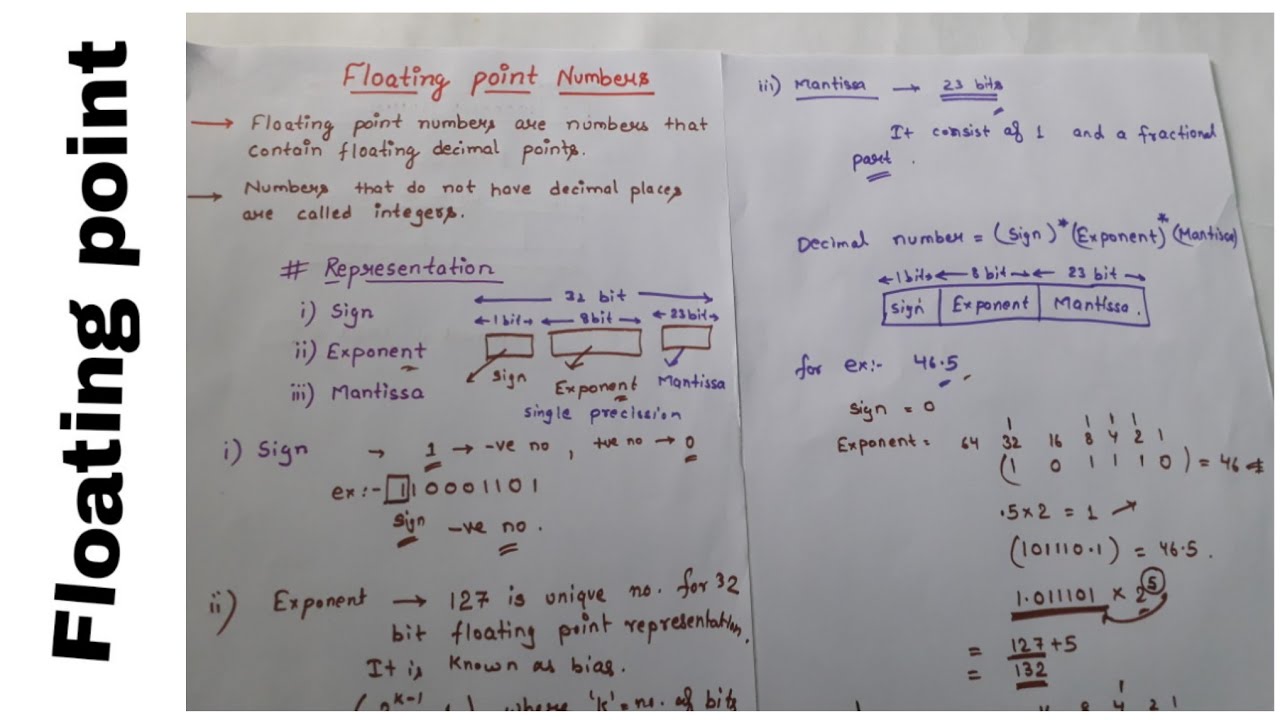 Floating point
Floating point Numbers
→ Floating point numbers are numbers that
contain floating decimal points.
→ Numbers that do not have decimal places
are called integers.
# Representation
i) Sign
ii) Exponent
iii) Mantissa
32 bit
1 bit 8 bit 23 bit
Sign Exponent Mantissa
Single precission
i) Sign → 1 → -ve no , +ve no → 0
ex :- 110001101
Sign -ve no .
ii) Exponent → 127 is unique no. for 32
bit floating point representation.
It is known as bias.
where 'k' = no. of bits
iii) Mantissa → 23 bits
It consist of 1 and a fractional
part .
Decimal number = (Sign)*(Exponent)*(Mantissa)
1 bits 8 bit 23 bit
Sign Exponent Mantissa.
for ex:- 46.5
Sign = 0
1 1 1 1
Exponent = 64 32 16 8 4 2 1
(1 0 1 1 1 0) = 46
.5 x 2 = 1
(101110.1) = 46.5 .
1.011101 x 2⁵
= 127+5
= 132
1
8 4 2 1